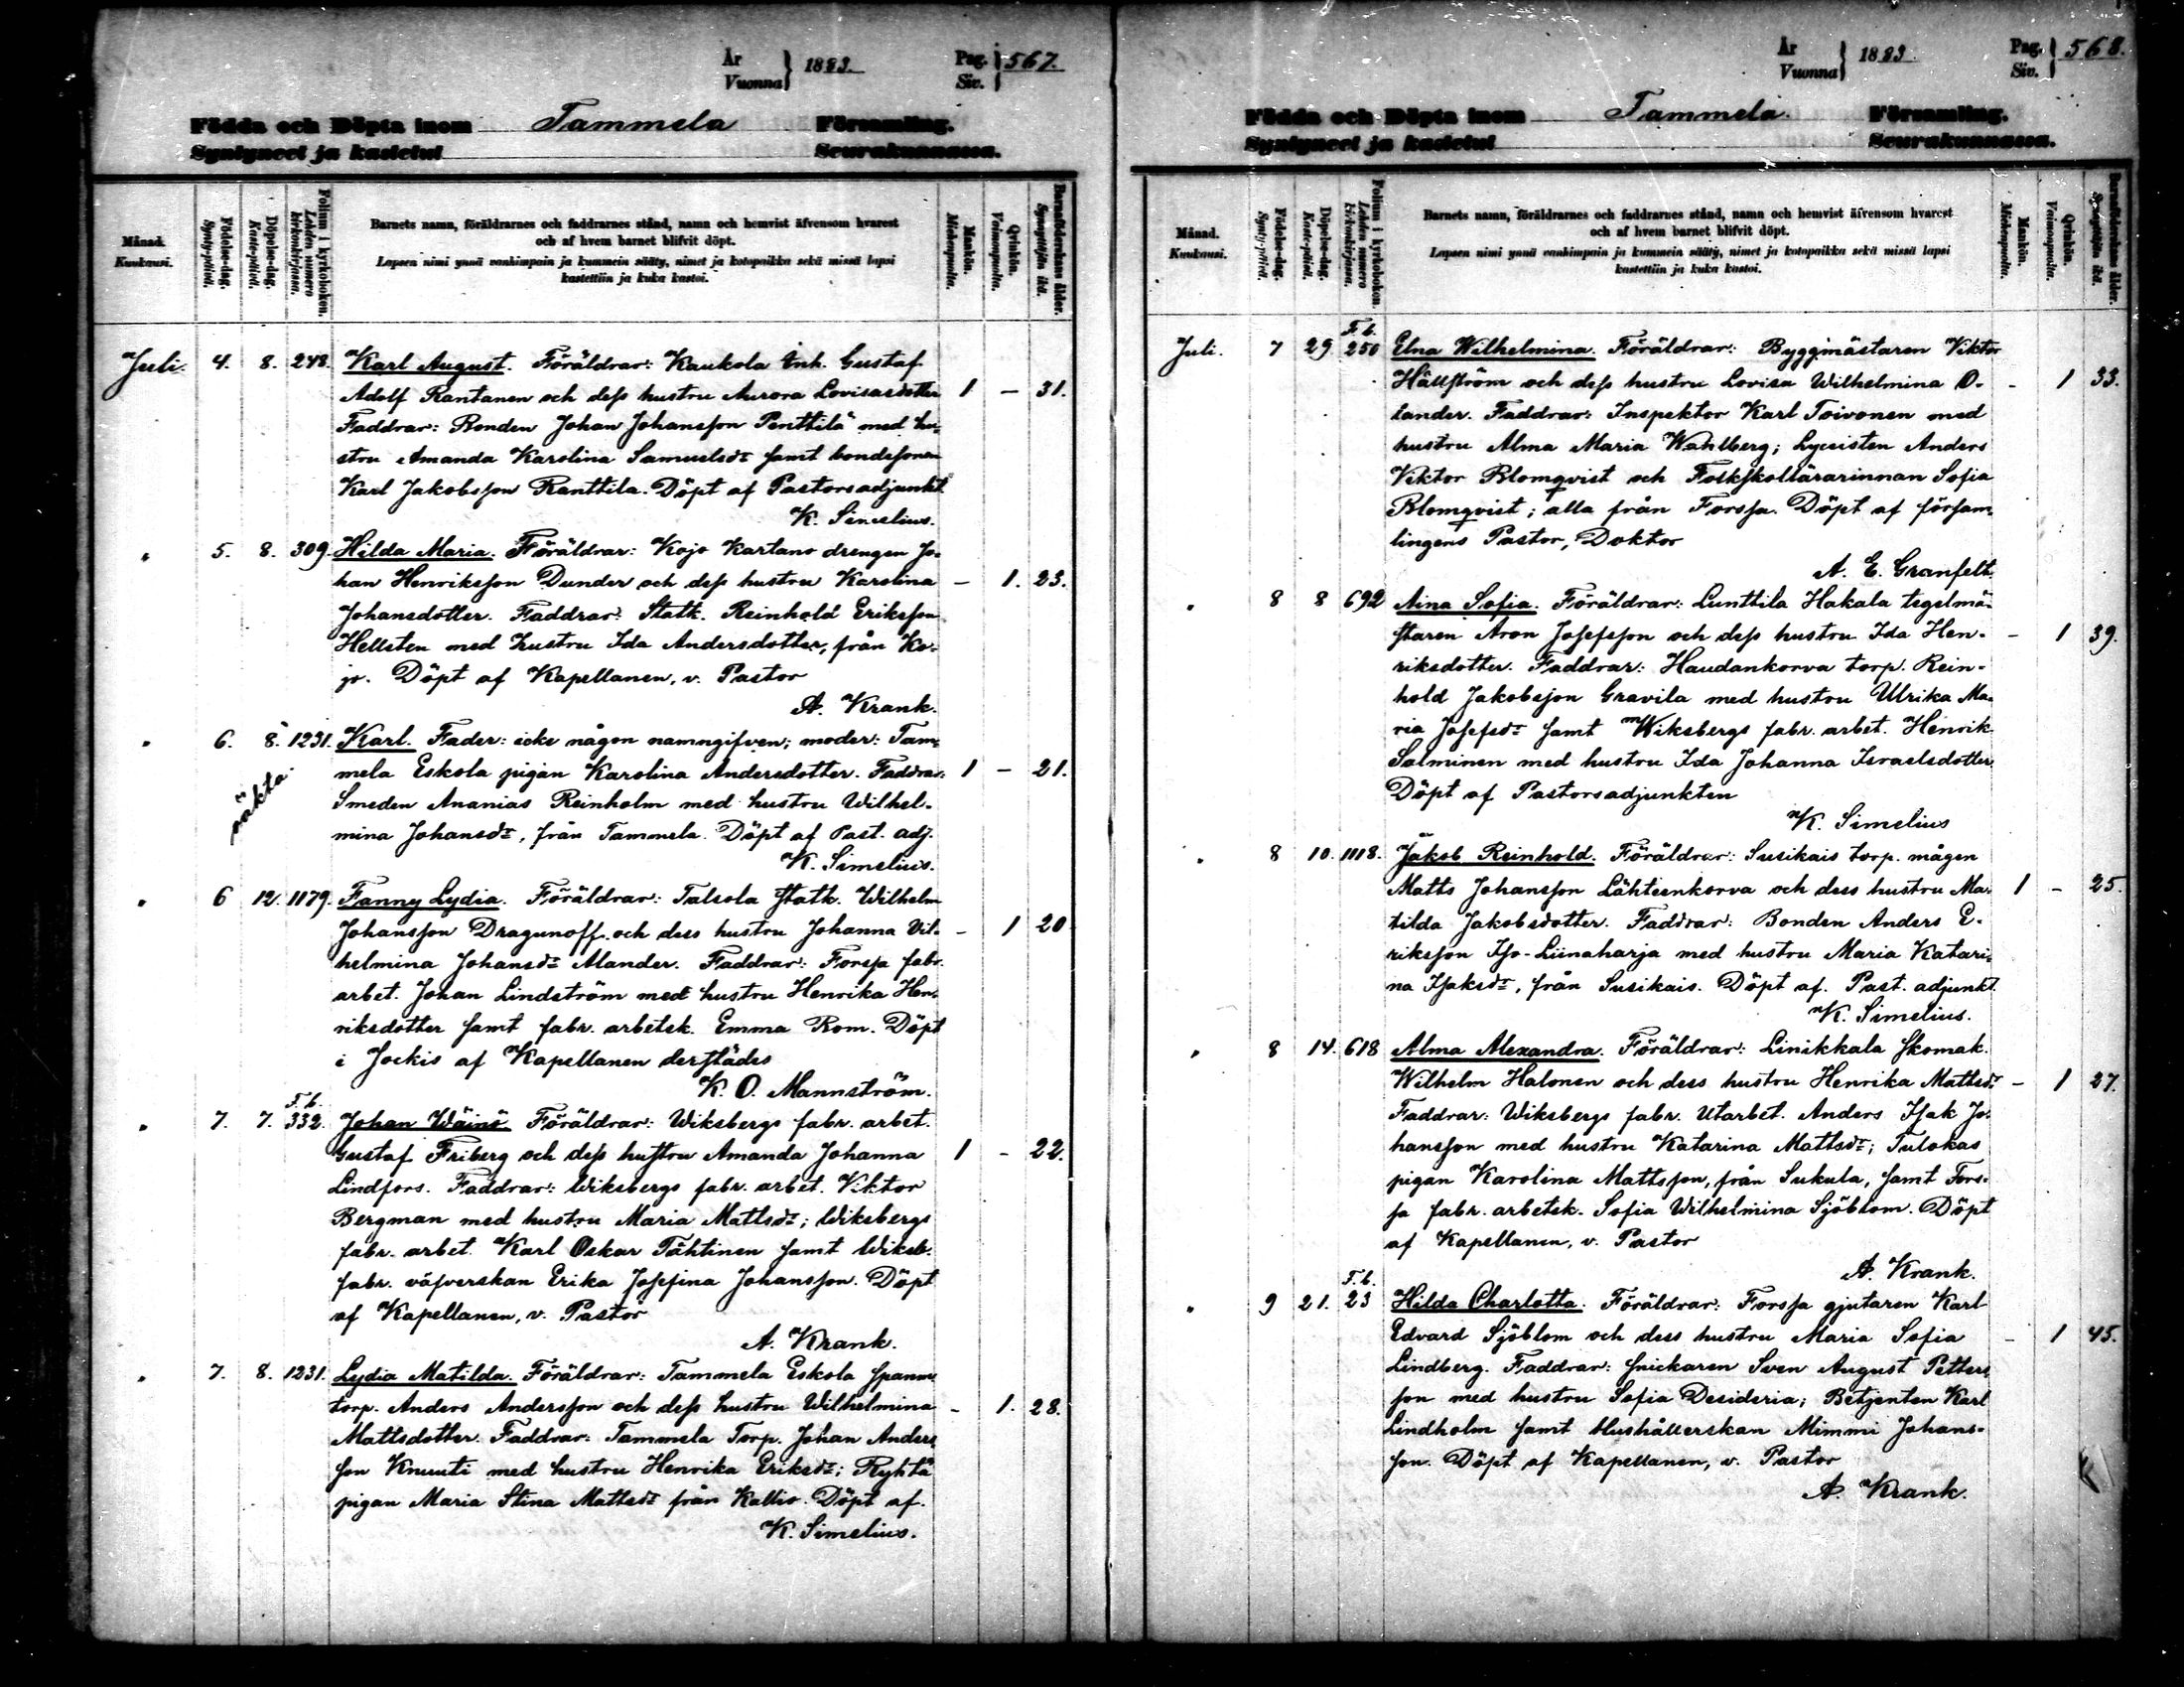 År
Vuonna } 1883. Pag. Siv. } 567.
Födda och Döpta inom Tammela Församling.
Syntyneet ja kastetut Seurakunnassa.
Månad. Kuukausi.
Födelse-dag. Synty-päivä.
Döpelse-dag. Kaste-päivä.
Folium i kyrkoboken. Lehden numero kirkonkirjassa.
Barnets namn, föräldrarnes och faddrarnes stånd, namn och hemvist äfvensom hvarest
och af hvem barnet blifvit döpt.
Lapsen nimi ynnä vanhimpain ja kummein sääty, nimet ja kotopaikka sekä missä lapsi
kastettiin ja kuka kastoi.
Mankön. Miehenpuolta.
Qvinkön. Vaimonpuolta.
Barnaföderskans ålder. Synnyttäjän ikä.
Juli. 4. 8. 248. Karl August. Föräldrar: Kaukola Inh. Gustaf
Adolf Rantanen och dess hustru Aurora Lovisasdotter 1 – 31.
Faddrar: Bonden Johan Johansson Penttilä med hu-
stru Amanda Karolina Samuelsdr samt bondesonen
Karl Jakobsson Ranttila. Döpt af Pastorsadjunkt
K. Simelius.
" 5. 8. 309. Hilda Maria. Föräldrar: Kojo Kartano drengen Jo-
han Henriksson Dunder och dess hustru Karolina – 1. 23.
Johansdotter. Faddrar: Statk. Reinhold Eriksson
Hellsten med hustru Ida Andersdotter, från Ko-
jo. Döpt af Kapellanen, v. Pastor
A. Krank.
" 6. 8. 1231. Karl. Fader: icke någon namngifven; moder: Tam-
mela Eskola pigan Karolina Andersdotter. Faddrar: 1 – 21.
oäkta
Smeden Ananias Reinholm med hustru Wilhel-
mina Johansdr, från Tammela. Döpt af Past. adj.
K. Simelius.
" 6 12. 1179. Fanny Lydia. Föräldrar: Talsola statk. Wilhelm
Johansson Dragunoff och dess hustru Johanna Vil- – 1 20
helmina Johansdr Alander. Faddrar: Forssa fabr.
arbet. Johan Lindström med hustru Henrika Hen-
riksdotter samt fabr. arbetsk. Emma Rom. Döpt
i Jockis af Kapellanen derstädes
K. O. Mannström.
F. b.
" 7. 7. 332. Johan Wäinö Föräldrar: Wiksbergs fabr. arbet.
Gustaf Friberg och dess hustru Amanda Johanna 1 – 22.
Lindfors. Faddrar: Wiksbergs fabr. arbet. Viktor
Bergman med hustru Maria Mattsdr; Wiksbergs
fabr. arbet. Karl Oskar Tähtinen samt Wiksb.
fabr. väfverskan Erika Josefina Johansson. Döpt
af Kapellanen, v. Pastor
A. Krank.
" 7. 8. 1231. Lydia Matilda. Föräldrar: Tammela Eskola spanm
torp. Anders Andersson och dess hustru Wilhelmina – 1. 28.
Mattsdotter. Faddrar: Tammela Torp. Johan Anders
son Knuuti med hustru Henrika Eriksdr; Ryhtä
pigan Maria Stina Mattsdr från Kallio. Döpt af
K. Simelius.
År
Vuonna } 1883. Pag. Siv. } 568.
Födda och Döpta inom Tammela. Församling.
Syntyneet ja kastetut Seurakunnassa.
Månad. Kuukausi.
Födelse-dag. Synty-päivä.
Döpelse-dag. Kaste-päivä.
Folium i kyrkoboken. Lehden numero kirkonkirjassa.
Barnets namn, föräldrarnes och faddrarnes stånd, namn och hemvist äfvensom hvarest
och af hvem barnet blifvit döpt.
Lapsen nimi ynnä vanhimpain ja kummein sääty, nimet ja kotopaikka sekä missä lapsi
kastettiin ja kuka kastoi.
Mankön. Miehenpuolta.
Qvinkön. Vaimonpuolta.
Barnaföderskans ålder. Synnyttäjän ikä.
F. b.
Juli. 7 29 250 Elna Wilhelmina. Föräldrar: Byggmästaren Viktor
Hällström och dess hustru Lovisa Wilhelmina O- – 1 33.
lander. Faddrar: Inspektor Karl Toivonen med
hustru Alma Maria Wahlberg; Lyceisten Anders
Viktor Blomqvist och Folkskollärarinnan Sofia
Blomqvist; alla från Forssa. Döpt af försam-
lingens Pastor, Doktor
A. E. Granfelt.
" 8 8 692 Aina Sofia. Föräldrar: Lunttila Hakala tegelmä-
staren Aron Josefsson och dess hustru Ida Hen- – 1 39.
riksdotter. Faddrar: Haudankorva torp. Rein-
hold Jakobsson Gravila med hustru Ulrika Ma-
ria Josefsdr samt Wiksbergs fabr. arbet. Henrik
Salminen med hustru Ida Johanna Israelsdotter.
Döpt af Pastorsadjunkten
K. Simelius
" 8 10. 1118. Jakob Reinhold. Föräldrar: Susikais torp. mågen
Matts Johansson Lähteenkorva och dess hustru Ma- 1 – 25.
tilda Jakobsdotter. Faddrar: Bonden Anders E-
riksson Iso-Liinaharja med hustru Maria Katari-
na Isaksdr, från Susikais. Döpt af. Past. adjunkt.
K. Simelius.
" 8 14. 618 Alma Alexandra. Föräldrar: Linikkala skomak.
Wilhelm Halonen och dess hustru Henrika Mattsdr – 1 27.
Faddrar: Wiksbergs fabr. Utarbet. Anders Isak Jo-
hansson med hustru Katarina Mattsdr; Tulokas
pigan Karolina Mattsson, från Sukula, samt Fors-
sa fabr. arbetsk. Sofia Wilhelmina Sjöblom. Döpt
af Kapellanen, v. Pastor
A. Krank.
F. b.
" 9 21. 23 Hilda Charlotta. Föräldrar: Forssa gjutaren Karl
Edvard Sjöblom och dess hustru Maria Sofia – 1 45.
Lindberg. Faddrar: snickaren Sven August Petters
son med hustru Sofia Desideria; Betjenten Karl
Lindholm samt Hushållerskan Mimmi Johans-
son. Döpt af Kapellanen, v. Pastor
A. Krank.